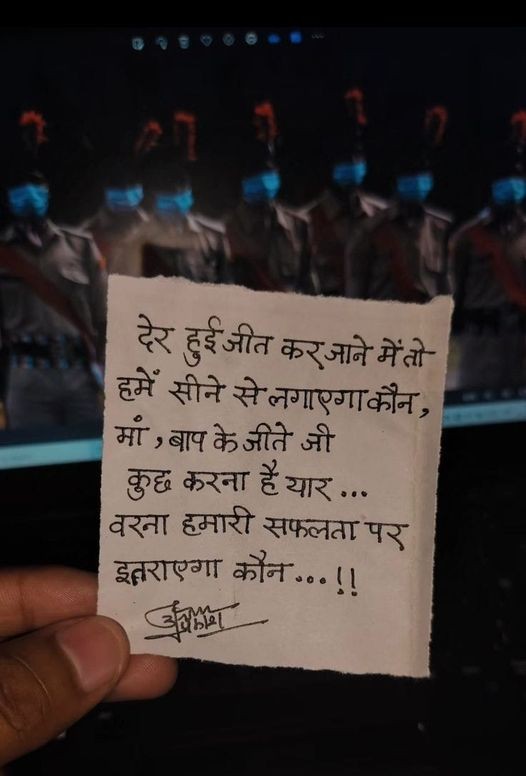 देर हुई जीत कर जाने में तो
हमें सीने से लगाएगा कौन,
मां, बाप के जीते जी
कुछ करना है यार ...
वरना हमारी सफलता पर
इतराएगा कौन...!!